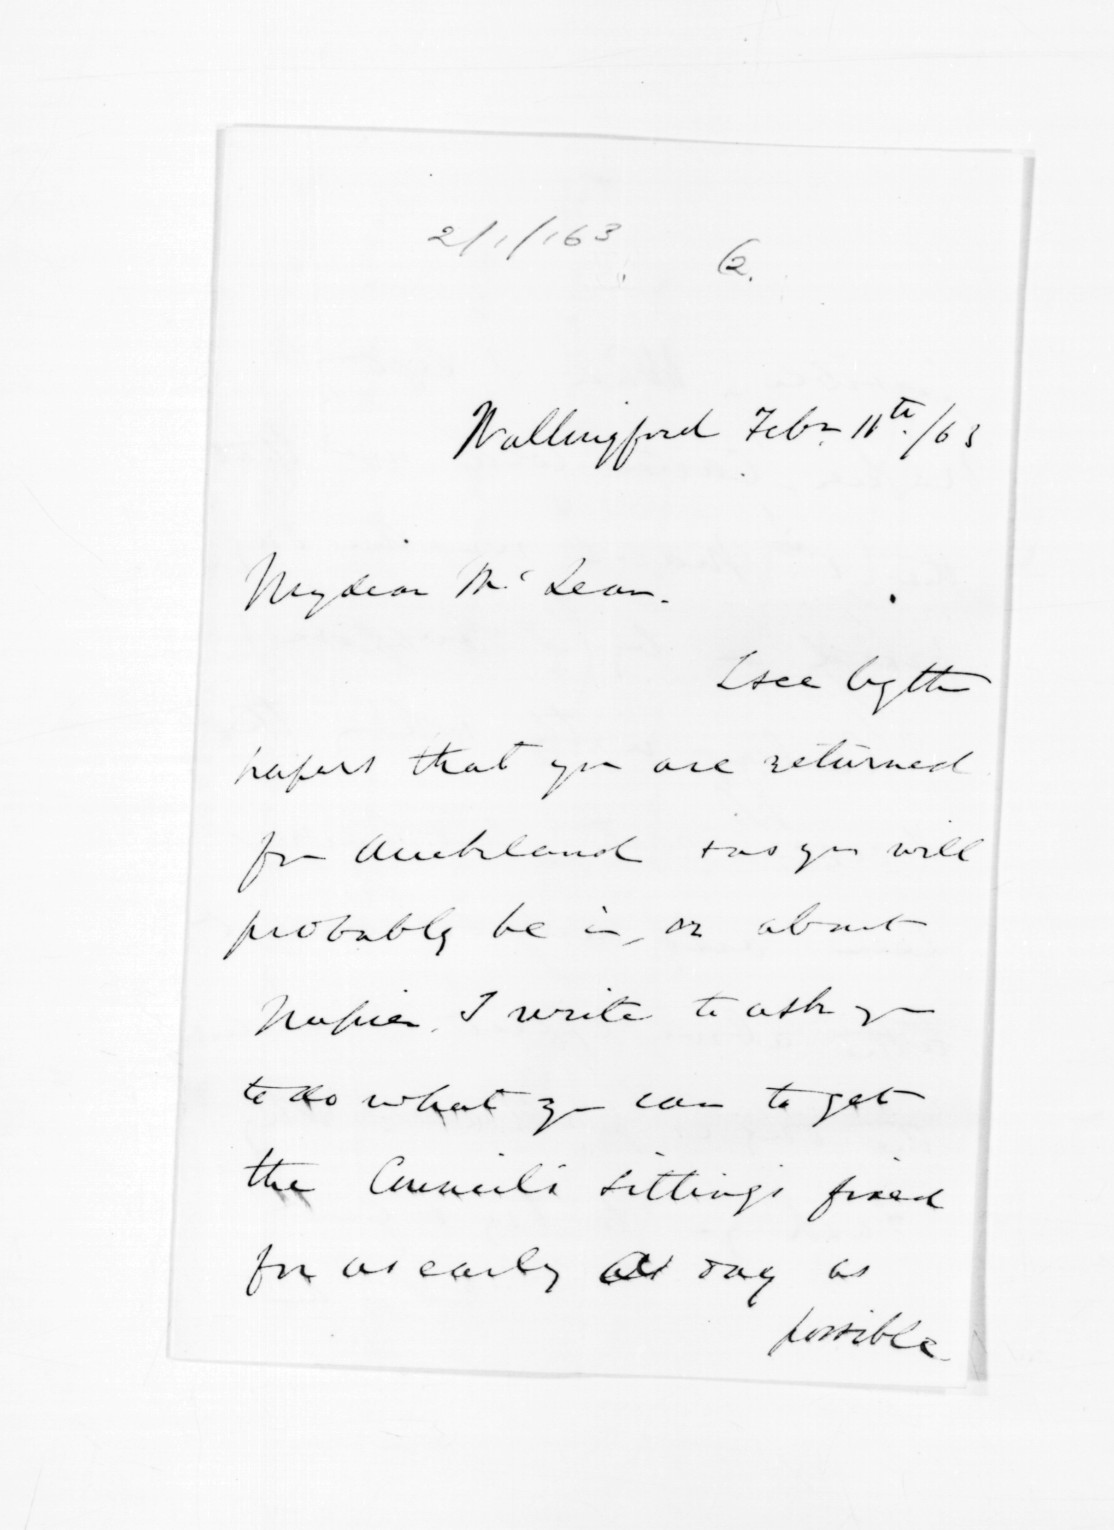 2/1/163 62.
Wallingford Feby 11th/63
My dear McLean.
I see by the
papers that you are returned
from Auckland & as you will
probably be in, or about
Napier, I write to ask you
to do what you can to get
the Councils sittings fixed
for as early a day as
possible